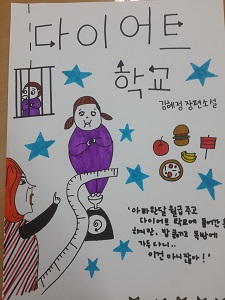 다이어트
학교
김혜정 장편소설
주고
다이어트 학교에 들어간
하지만, 밥 굶기고 독방에
가두다니..
이건 아니잖아!'